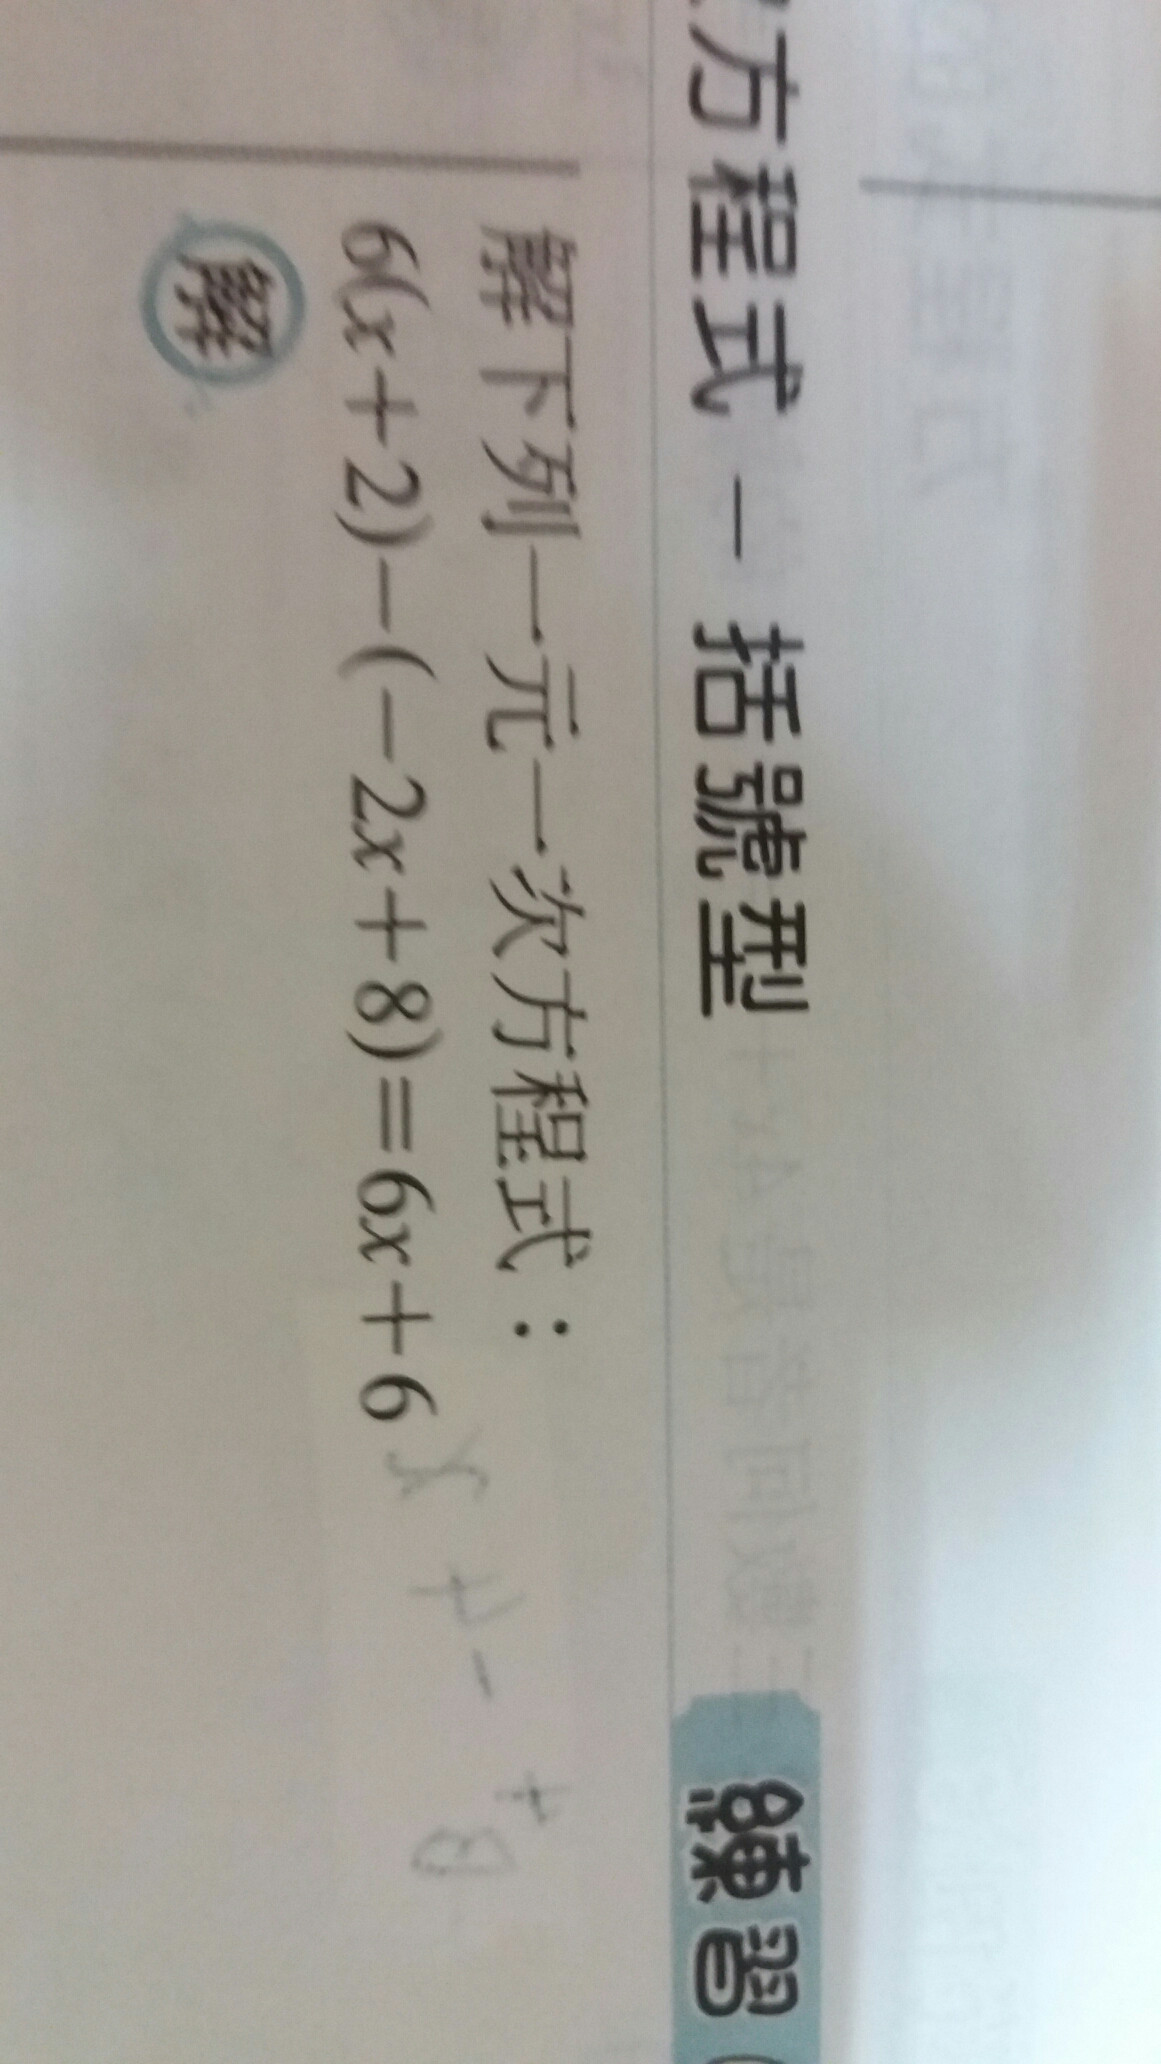 方程式－括號型
練習
解下列一元一次方程式：
6(x+2)-(-2x+8)=6x+6
解